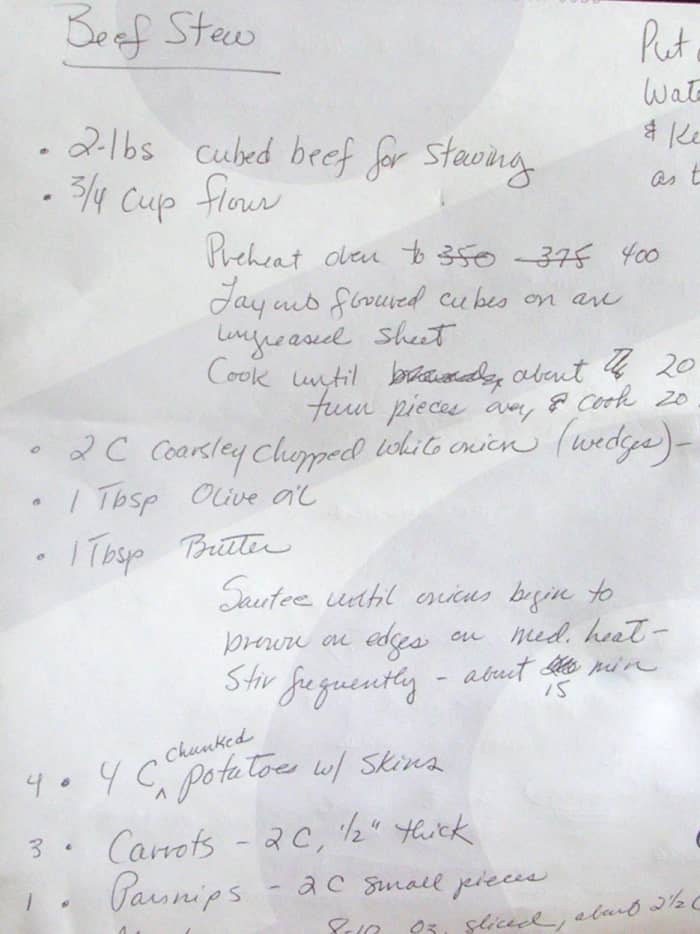 Beef Stew
• 2-lbs cubed beef for stewing
• 3/4 cup flour
Preheat oven to 350 375 400
Lay out floured cubes on an
ungreased sheet
Cook until about 20
turn pieces over, & cook 20
• 2 C Coarsley chopped white onion (wedges) –
• 1 Tbsp Olive oil
• 1 Tbsp Butter
Sautee until onions begin to
brown on edges on med. heat –
Stir frequently – about 15 min
4 • 4 C chunked potatoes w/ skins
3 • Carrots – 2 C, 1/2" thick
1 • Parsnips – 2 C small pieces
8-10 oz, sliced, about 2 1/2 C
Put
Wat
& Ke
as t